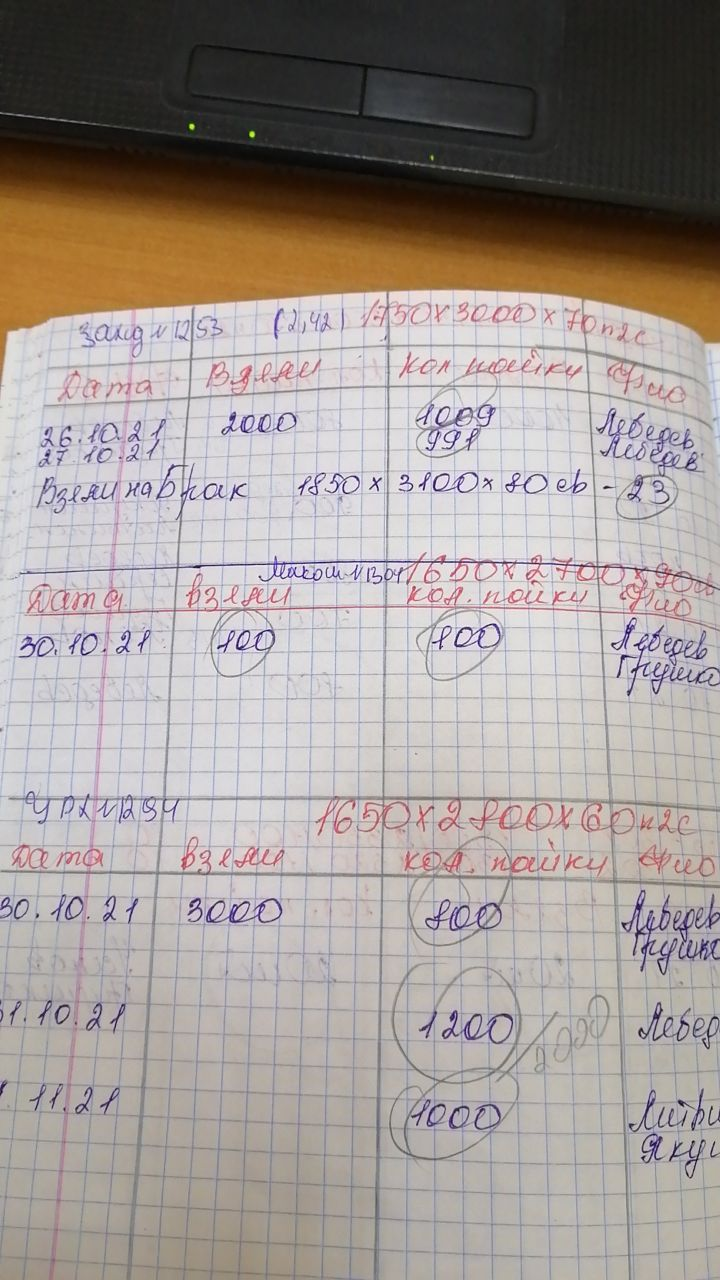 N1253 (2,42) 1750×3000×70п2с
Дата Взяли Кол пайки Фио
26.10.21 2000 1009 Лебедев
27.10.21 991 Лебедев
Взяли на Брак 1850 × 3100 × 80 св - 23
N1304 1650×2700×90
Дата взяли кол. пайки Фио
30.10.21 100 100 Лебедев
Грушко
N1294 1650×2800×60п2с
Дата взяли кол. пайки Фио
30.10.21 3000 800 Лебедев
Грушко
1.10.21 1200 / 2000 Лебед
11.21 1000
Яку